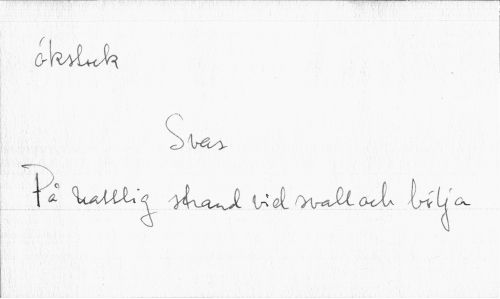 Svas
På nattlig strand vid svall och bölja